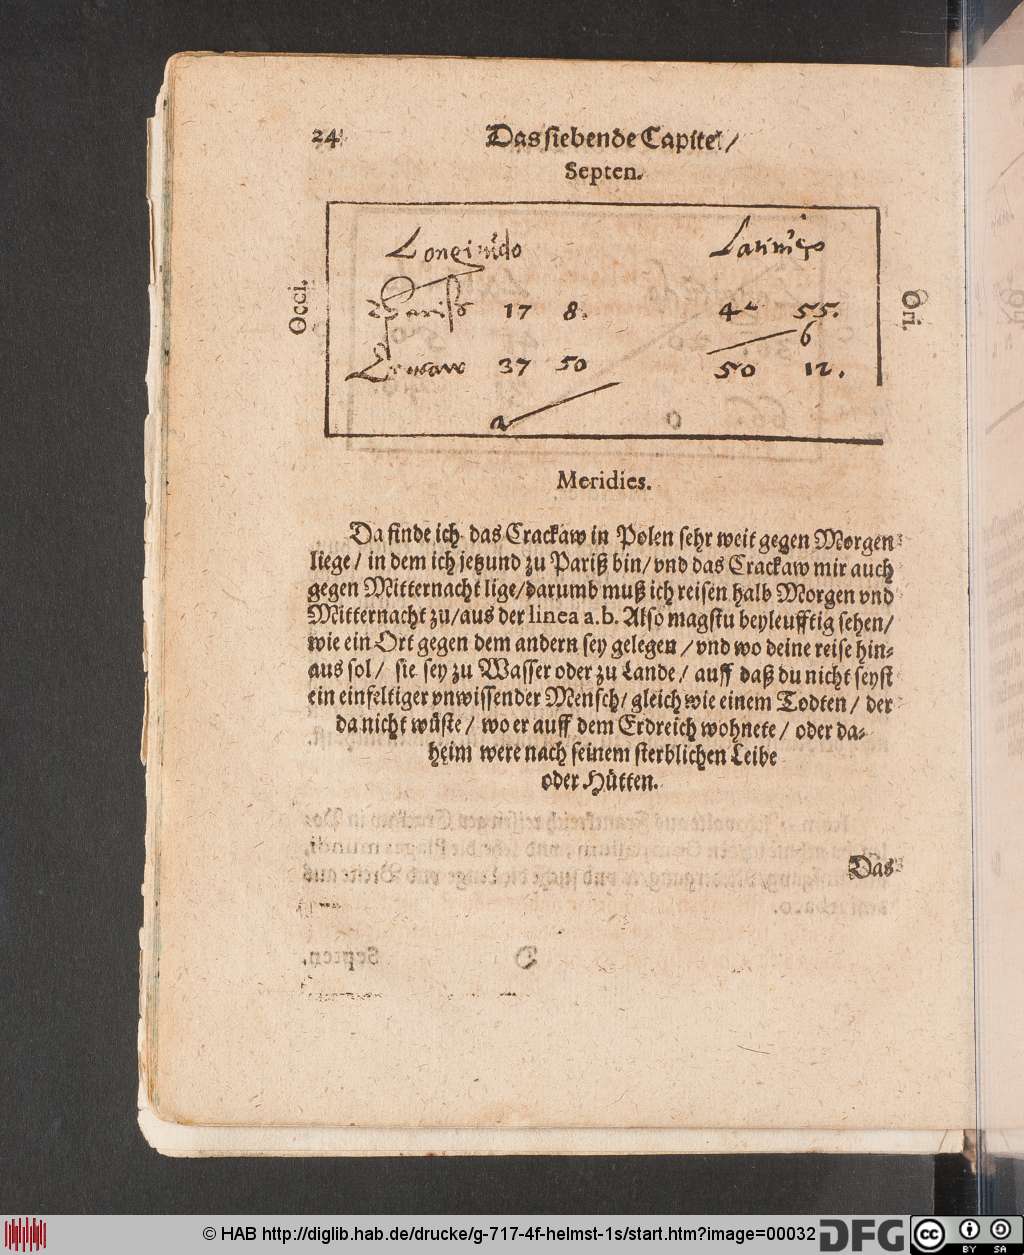 24
Das siebende Capitel /
Septen.
Occi.
Ori.
Longitudo
Latitudo
Pariß 17 8.
55.
b
Cracaw 37 50
50 12.
a
Meridies.
Da finde ich das Crackaw in Polen sehr weit gegen Morgen
liege / in dem ich jetzund zu Pariß bin / vnd das Crackaw mir auch
gegen Mitternacht lige / darumb muß ich reisen halb Morgen vnd
Mitternacht zu / aus der linea a.b. Also magstu beyleufftig sehen /
wie ein Ort gegen dem andern sey gelegen / vnd wo deine reise hin⸗
aus sol / sie sey zu Wasser oder zu Lande / auff daß du nicht seyst
ein einfeltiger vnwissender Mensch / gleich wie einem Todten / der
da nicht wüste / wo er auff dem Erdreich wohnete / oder da⸗
heim were nach seinem sterblichen Leibe
oder Hütten.
Das
© HAB http://diglib.hab.de/drucke/g-717-4f-helmst-1s/start.htm?image=00032
DFG
cc
BY SA